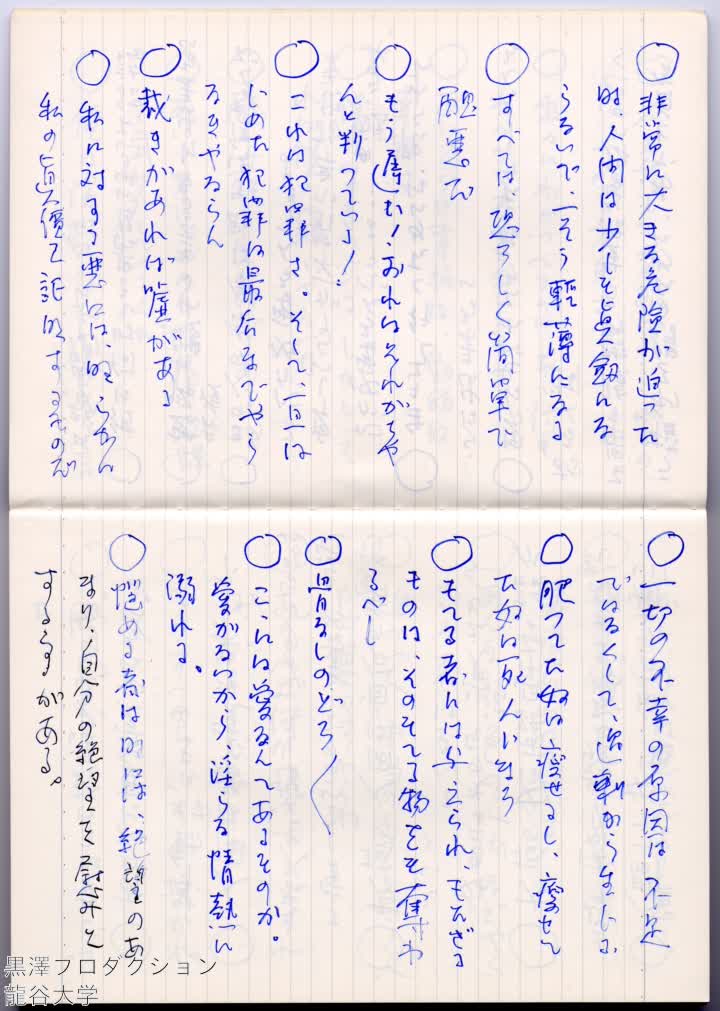 ○ 非常に大きな危険が迫った
時、人間は少しも真剣にな
らないで、一そう軽薄になる
○ すべては、恐ろしく簡単で
醜悪だ
○ もう厭だ!おれはそれがちゃ
んと判っている!
○ これは犯罪さ。そして、一旦は
じめた犯罪は最后までやら
なきやならん
○ 裁きがあれば嘘がある
○ 私に対する悪には、明らかに
私の眞價を証明するものだ
○ 一切の不幸の原因は不足
ではなくして、過剰から生じる
○ 肥つてた奴は瘦せるし、瘦せて
た奴は死んじまう
○ もてる者には与えられ、もたざる
ものは、そのもてる物をも奪わ
るべし
○ 骨なしのどろ〱
○ こゝには愛なんてあるものか。
愛がないから、淫らな情熱に
溺れる。
○ 悩める者は時には、絶望のあ
まり、自分の絶望を慰みと
する事がある。
黒澤プロダクション
龍谷大学